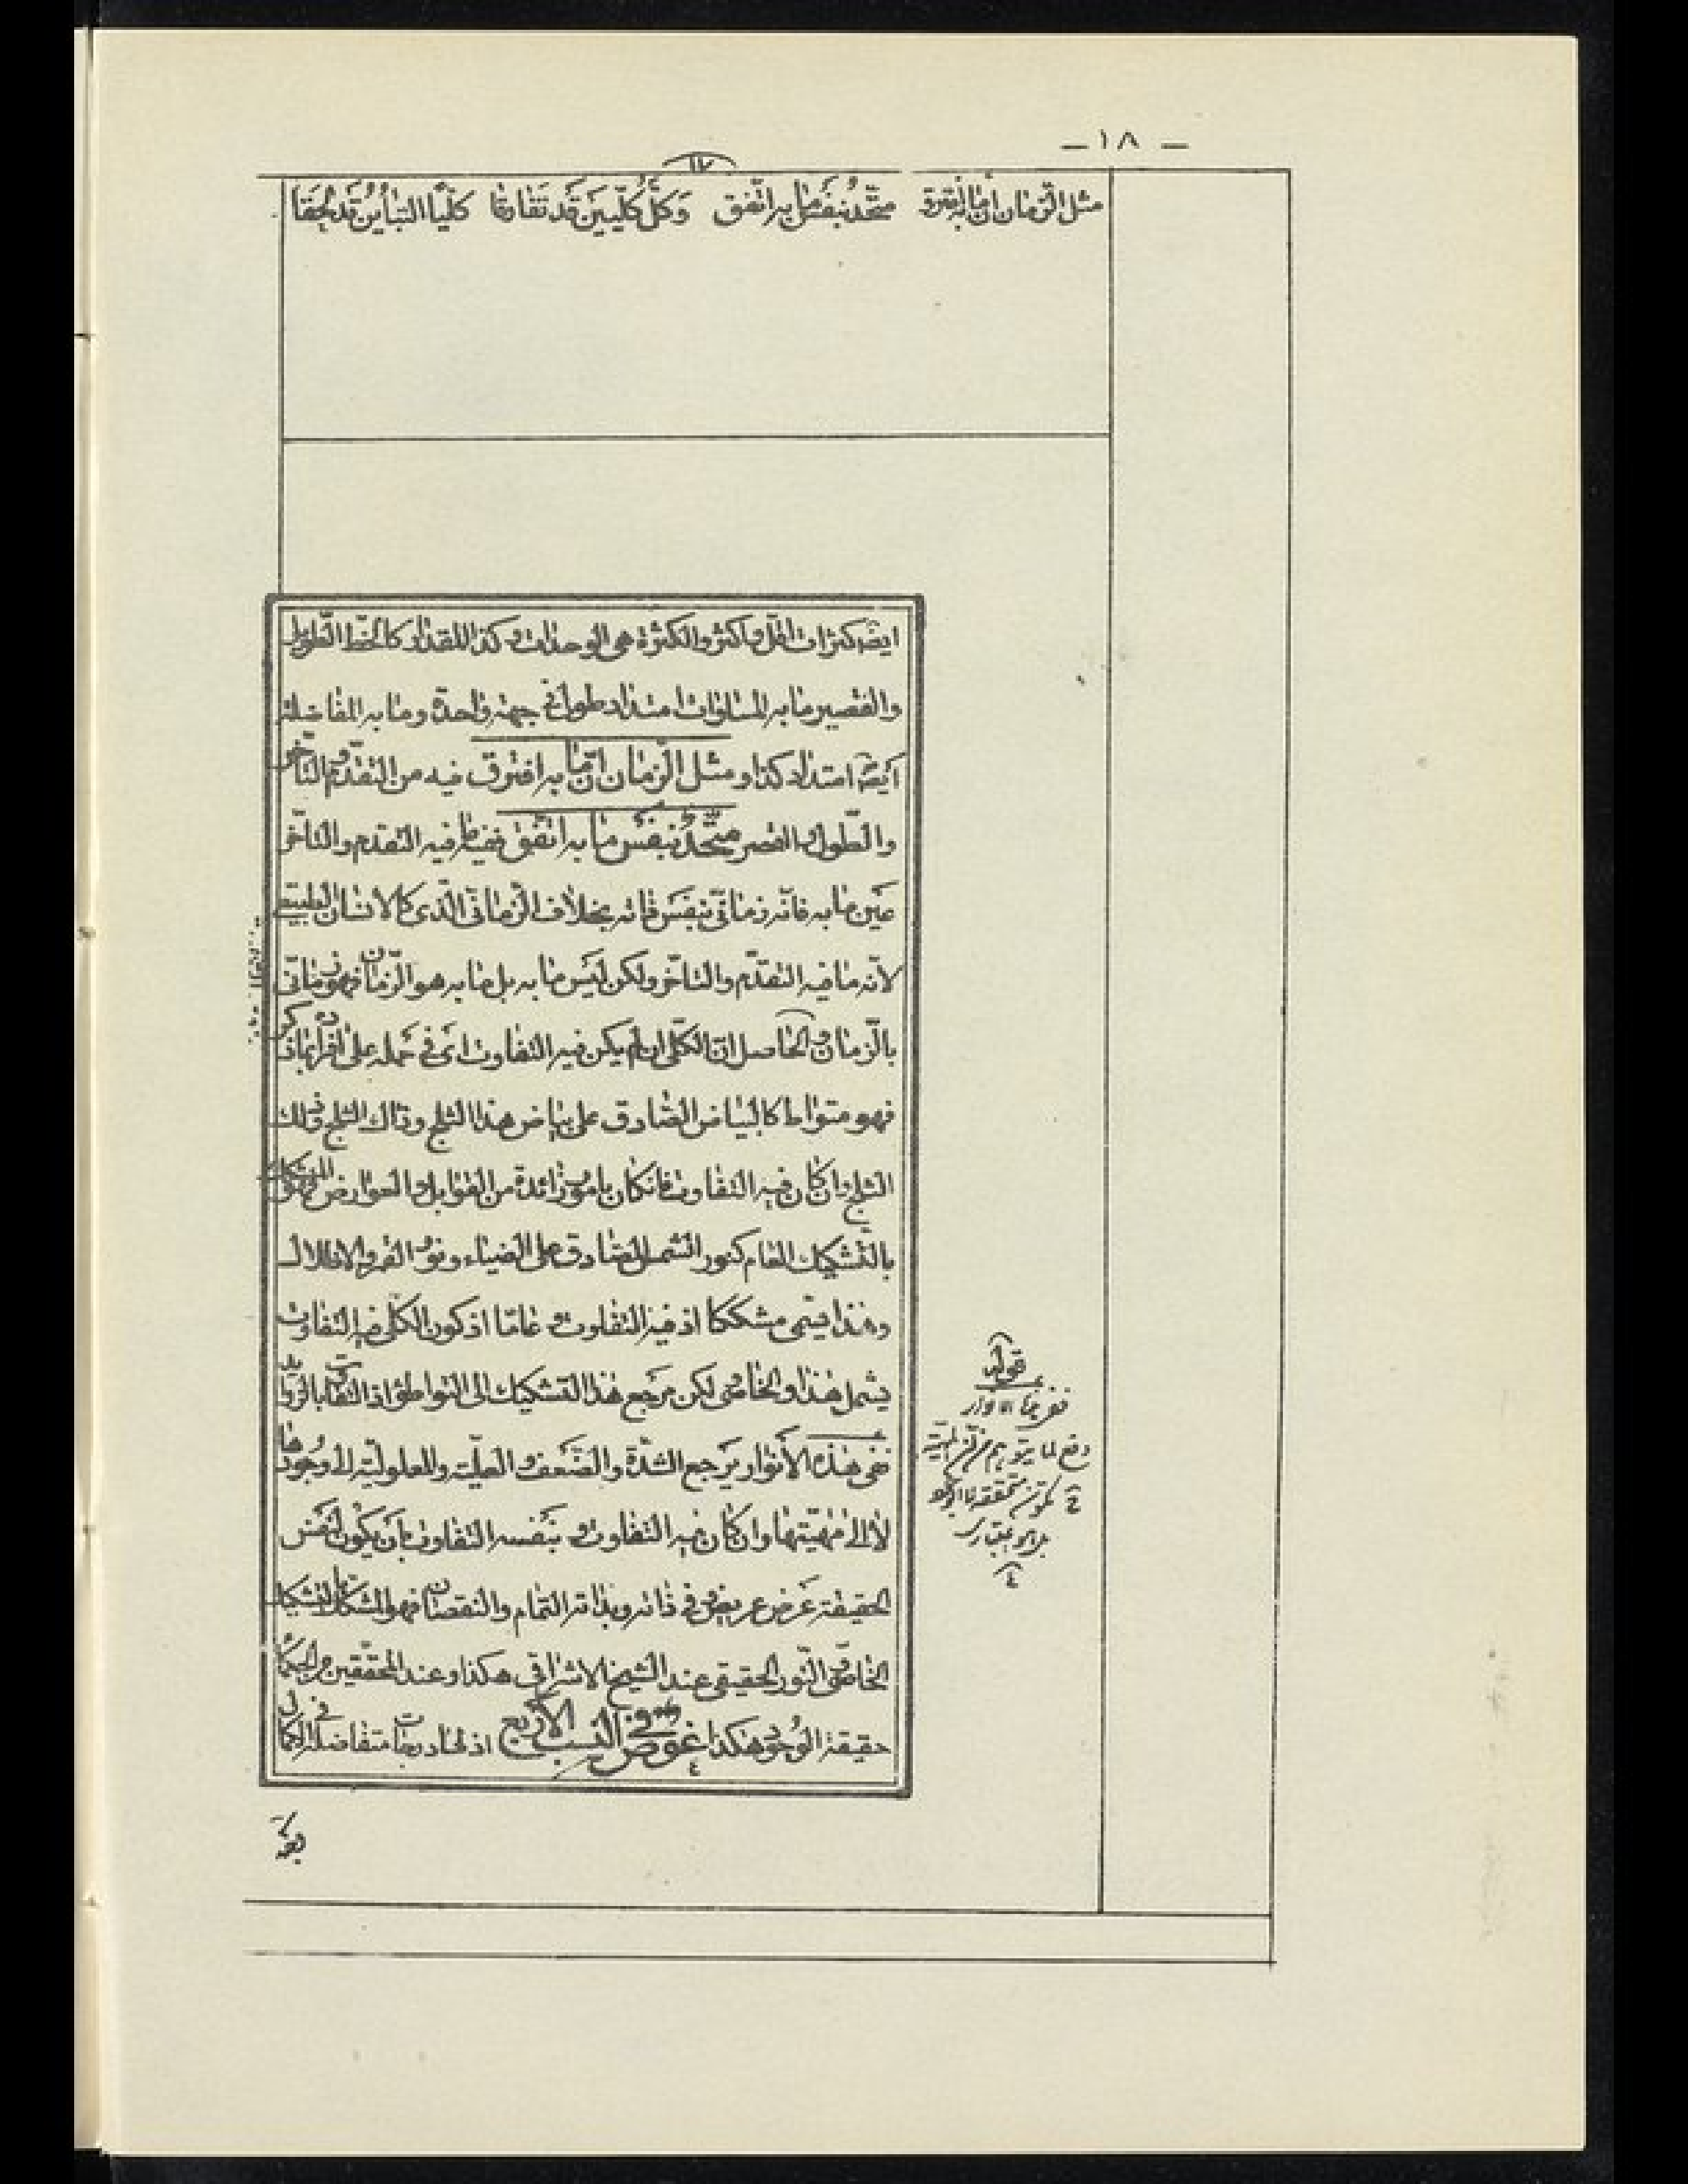 — ١٨ —
١٧
مثل الزّمان انّ ما به افترق متّحدٌ بنفس ما به اتّفق وَكلُّ كلّيين قَد تَفارقا كلّيًّا التبايُنُ قَد تحقّقا
ايضا كثرات اقل واكثر والكثرة هى الوحدات وكذا المقدار كالخط الطويل
والقصير ما به المساوات امتداد طولى فى جهة واحدة وما به المفاضلة
ايضا امتداد كذا ومثل الزّمان انّ ما به افترق فيه من التقدّم والتأخّر
والطّول والقصر متّحدٌ بنفس ما به اتّفق فيه التقدم والتاخّر
عين ما به فانّه زمانّى بنفس ذاته بخلاف الزّمانّى الّذى كالانسان الطبيعى
لانّه ما فيه التقدّم والتاخّر ولكن ليس ما به بل ما به هو الزّمان فهو زمانّى
بالزّمان والحاصل انّ الكلّى ان لم يكن فيه التفاوت اى فى حمله على افراده
فهو متواط كالبياض الصّادق على بياض هذا الثلج وذاك الثلج وذلك
الثلج وان كان فيه التفاوت فانكان بامور زائدة من القوابل والعوارض فهو المشكك
بالتّشكيك العام كنور الشمس الصّادق على الضياء ونور القمر والاظلال
وهذا يسمّى مشككا اذ فيه التفاوت وعامّا اذ كون الكلّى فيه التفاوت
يشمل هذا والخاصّى لكن مرجع هذا التشكيك الى التواطؤ اذ التفاوت بالزوايد
ففى هذه الأنوار يرجع الشدّة والضّعف والعليّة والمعلوليّة الى وجودها
لا الى مهيّتها وان كان فيه التفاوت وبنفسه التفاوت بأن يكون لنفس
الحقيقة عرض عريض فى ذاته وبذاته التمام والنقصان فهو المشكك بالتشكيك
الخاصّى النّور الحقيقى عند الشيخ الاشراقى هكذا وعند المحقّقين من الحكماء
حقيقة الوجود هكذا غوص فى النسب الأربع اذ لها درجات متفاضلة فى الكمال
قوله
ففى هذه الانوار
دفع لما يتوهم